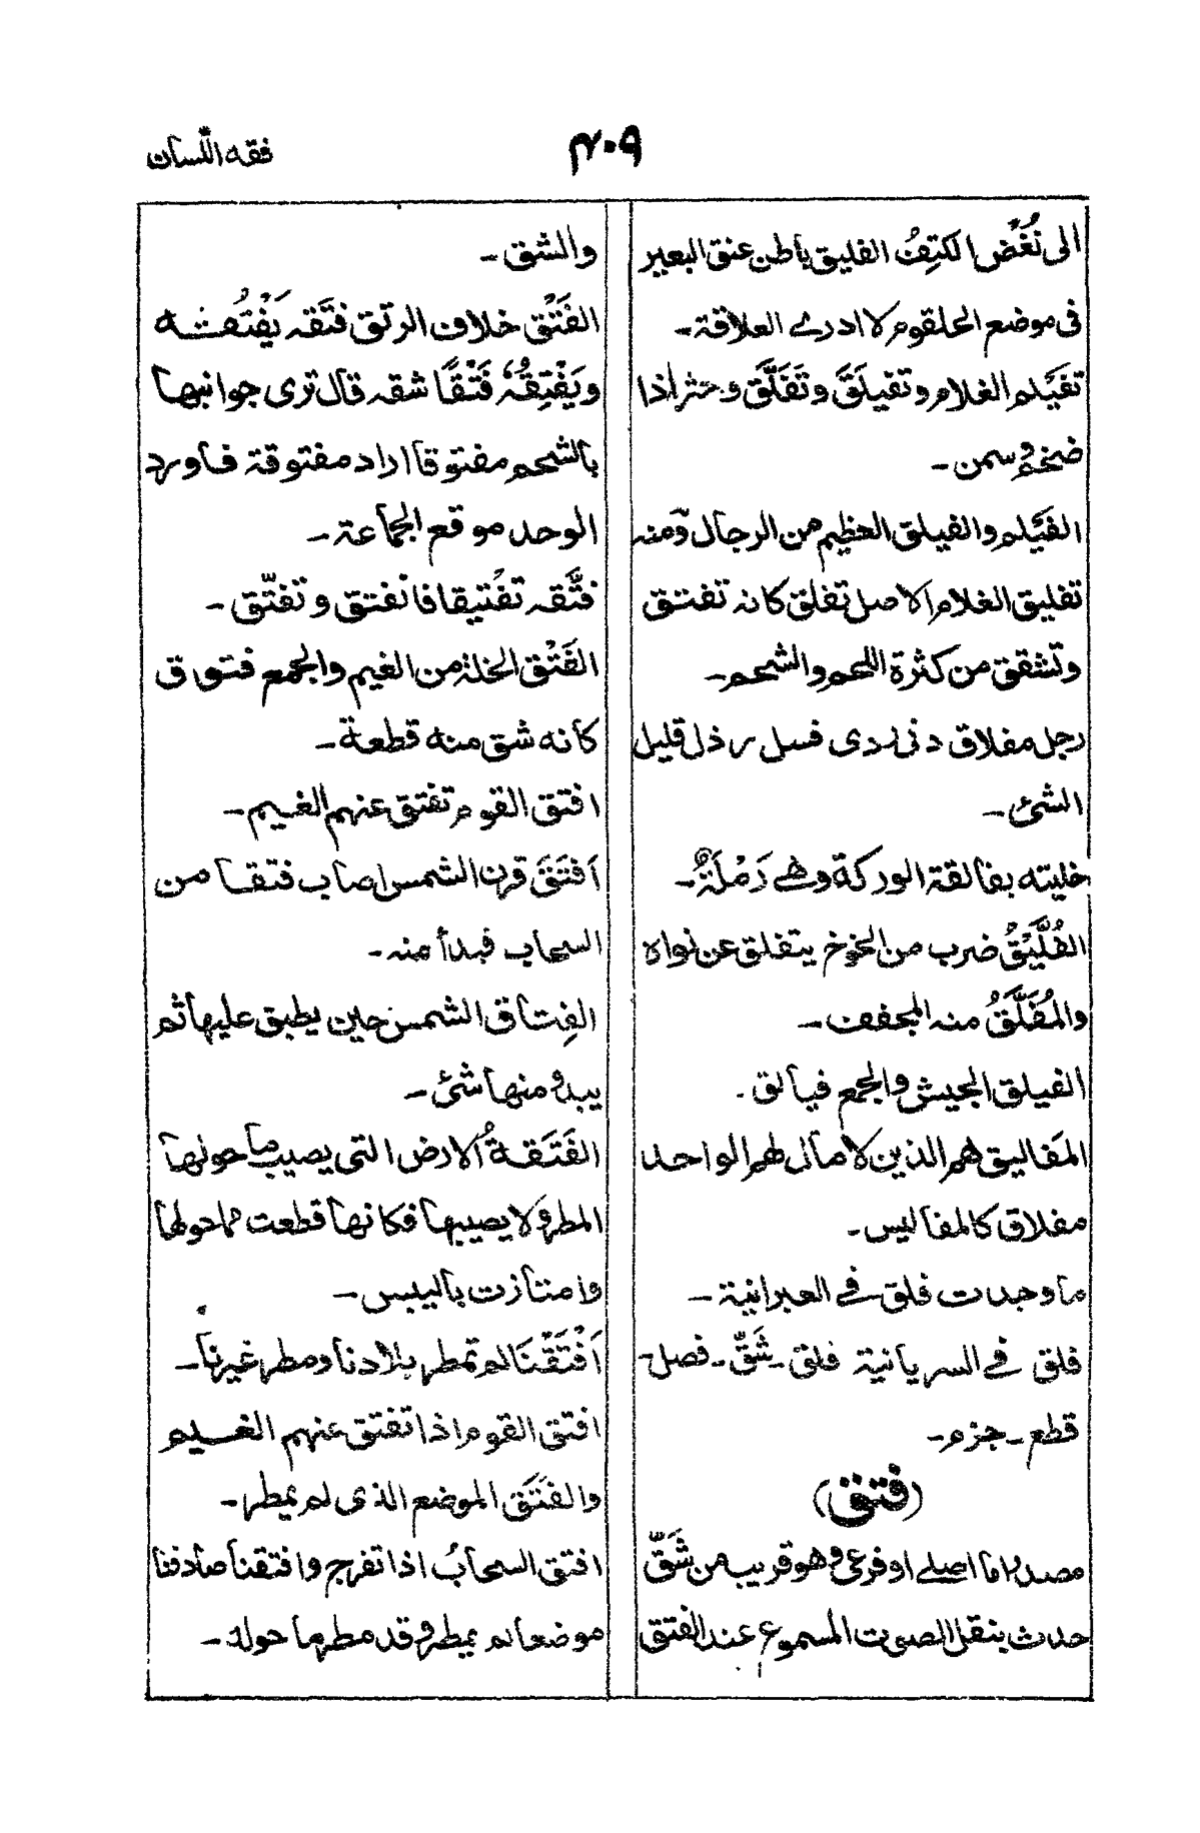 فقه اللسان
٤٠٩
الى نُغْضِ الكتِفُ الفليق باطن عنق البعير
فى موضع الحلقوم لا ادرى العلاقة-
تفَيْلم الغلام وتفيلَقَ وتَفَلَّقَ وحثر اذا
ضخم وسمن-
الفَيْلم والفيلق العظيم من الرجال ومنه
تفليق الغلام الاصل تفلق كانه تفتق
وتشقق من كثرة اللحم والشحم-
رجل مفلاق دنى ردى فسل رذل قليل
الشئ-
خليته بفالقة الوركة وهى رَمْلَةٌ-
الفُلَّيْقُ ضرب من الخوخ يتفلق عن نواه
والمُفَلَّقُ منه المجفف-
الفيلق الجيش والجمع فيالق.
المَفاليق هم الذين لا مال لهم الواحد
مفلاق كالمفاليس-
ما وجدت فلق فى العبرانية-
فلق فى السريانية فلق-شَقّ-فصل-
قطع-جزم-
(فتق)
مصدر اما اصلى او فرعى وهو قريب من شَقّ
حدث بنقل الصوت المسموع عند الفتق
والشق-
الفَتْق خلاف الرتق فتَقه يَفْتُقه
ويَفْتِقُهُ فَتْقًا شقه قال ترى جوانبها
بالشحم مفتوقا اراد مفتوقة فاورد
الوحد موقع الجماعة-
فتَّقه تفْتيقا فانفتق وتفتّق-
الفَتْق الخلة من الغيم والجمع فتوق
كانه شق منه قطعة-
افتق القوم تفتق عنهم الغيم-
اَفتَقَ قرن الشمس اصاب فتقا من
السحاب فبدأ منه-
الفِتاق الشمس حين يطبق عليها ثم
يبدو منها شئ-
الفَتَقةُ الارض التى يصيب ما حولها
المطر ولا يصيبها فكانها قطعت مما حولها
وامتازت باليبس-
اَفْتَقْنَا لم تمطر بلادنا ومطر غيرنا-
افتق القوم اذا تفتق عنهم الغيم
والفَتَق الموضع الذى لم يمطر-
افتق السحابُ اذا تفرج وافتقنا صادفنا
موضعا لم يمطر وقد مطر ما حوله-